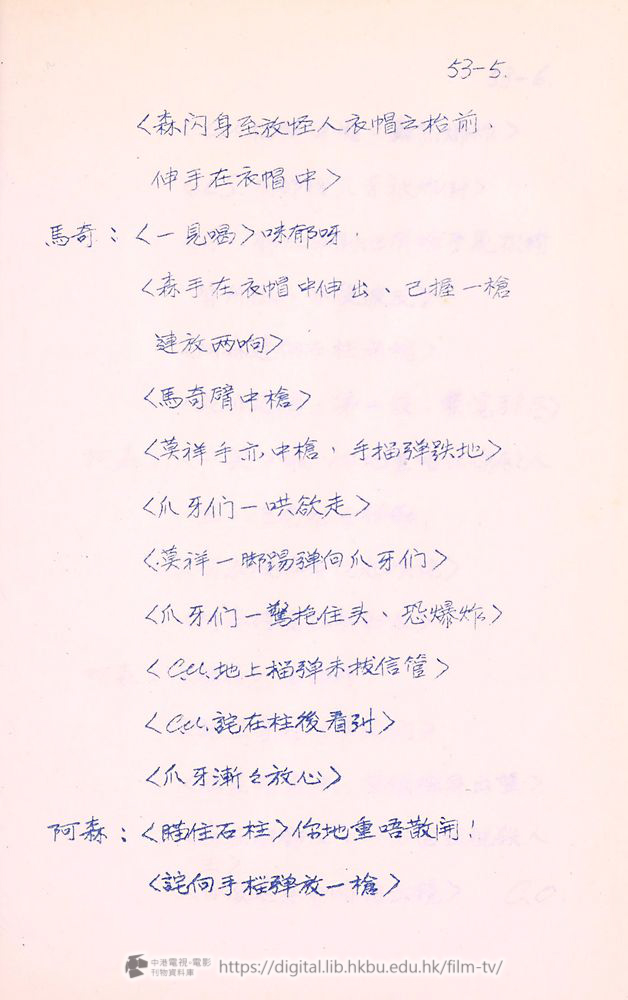 53-5.
<森闪身至放怪人衣帽之枱前、
伸手在衣帽中>
馬奇：<一見喝>咪郁呀.
<森手在衣帽中伸出、已握一槍
連放两响>
<馬奇臂中槍>
<莫祥手亦中槍、手榴弹跌地>
<爪牙们一哄欲走>
<莫祥一脚踢弹向爪牙们>
<爪牙们一驚抱住头、恐爆炸>
<C.U.地上榴弹未拔信管>
<C.U.詫在柱後看到>
<爪牙漸々放心>
阿森：<瞄住石柱>你地重唔散開!
<詫向手榴弹放一槍>
中港電視・電影
刊物資料庫
https://digital.lib.hkbu.edu.hk/film-tv/